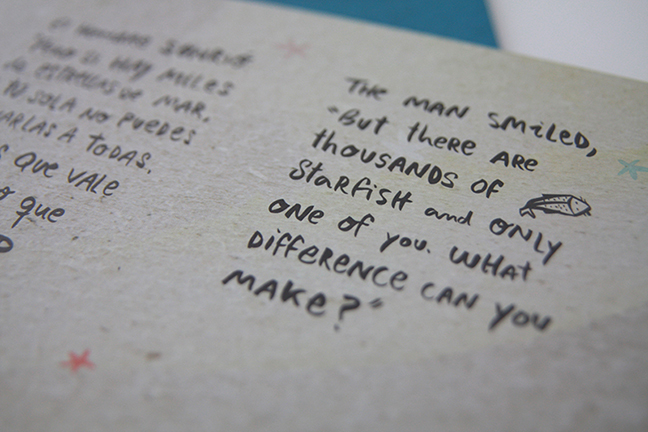 HOMBRE SONRIÓ
PERO SI HAY MILES
ESTRELLAS DE MAR,
TU SOLA NO PUEDES
ARLAS A TODAS.
QUE VALE
que
THE MAN SMiLED,
"BUT tHERE ARE
tHOUSANDS OF
StaRFiSH and ONLY
ONE OF YOU. WHAT
DiFFERENCE CAN YOU
MAKE?"